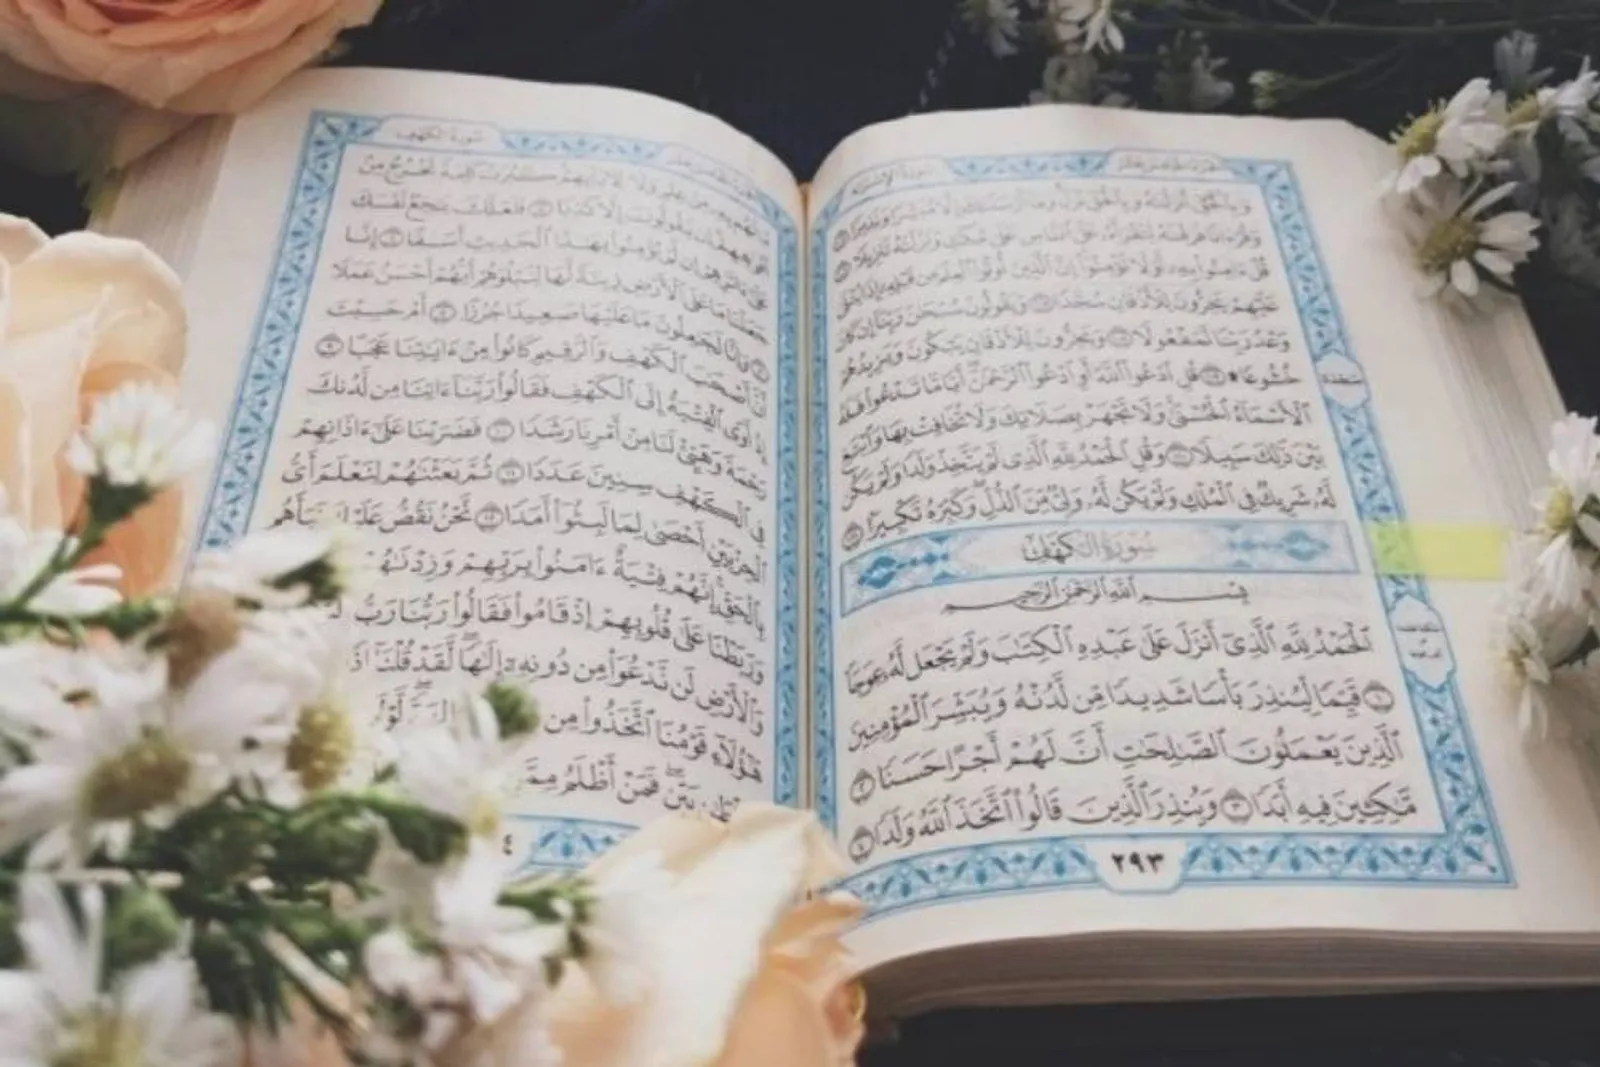 سُورَةُ الإِسْرَاءِ
الجُزْءُ الخَامِسَ عَشَرَ
وَبِٱلْحَقِّ أَنزَلْنَٰهُ وَبِٱلْحَقِّ نَزَلَ وَمَآ أَرْسَلْنَٰكَ إِلَّا مُبَشِّرًا وَنَذِيرًا ١٠٥
وَقُرْءَانًا فَرَقْنَٰهُ لِتَقْرَأَهُۥ عَلَى ٱلنَّاسِ عَلَىٰ مُكْثٍ وَنَزَّلْنَٰهُ تَنزِيلًا ١٠٦
قُلْ ءَامِنُوا۟ بِهِۦٓ أَوْ لَا تُؤْمِنُوٓا۟ إِنَّ ٱلَّذِينَ أُوتُوا۟ ٱلْعِلْمَ مِن قَبْلِهِۦٓ إِذَا يُتْلَىٰ
عَلَيْهِمْ يَخِرُّونَ لِلْأَذْقَانِ سُجَّدًا ١٠٧ وَيَقُولُونَ سُبْحَٰنَ رَبِّنَآ إِن كَانَ
وَعْدُ رَبِّنَا لَمَفْعُولًا ١٠٨ وَيَخِرُّونَ لِلْأَذْقَانِ يَبْكُونَ وَيَزِيدُهُمْ
خُشُوعًا ۩ ١٠٩ قُلِ ٱدْعُوا۟ ٱللَّهَ أَوِ ٱدْعُوا۟ ٱلرَّحْمَٰنَ أَيًّا مَّا تَدْعُوا۟ فَلَهُ
ٱلْأَسْمَآءُ ٱلْحُسْنَىٰ وَلَا تَجْهَرْ بِصَلَاتِكَ وَلَا تُخَافِتْ بِهَا وَٱبْتَغِ
بَيْنَ ذَٰلِكَ سَبِيلًا ١١٠ وَقُلِ ٱلْحَمْدُ لِلَّهِ ٱلَّذِى لَمْ يَتَّخِذْ وَلَدًا وَلَمْ يَكُن
لَّهُۥ شَرِيكٌ فِى ٱلْمُلْكِ وَلَمْ يَكُن لَّهُۥ وَلِىٌّ مِّنَ ٱلذُّلِّ وَكَبِّرْهُ تَكْبِيرًۢا ١١١
سُورَةُ الكَهْفِ
بِسْمِ ٱللَّهِ ٱلرَّحْمَٰنِ ٱلرَّحِيمِ
ٱلْحَمْدُ لِلَّهِ ٱلَّذِىٓ أَنزَلَ عَلَىٰ عَبْدِهِ ٱلْكِتَٰبَ وَلَمْ يَجْعَل لَّهُۥ عِوَجَا
١ قَيِّمًا لِّيُنذِرَ بَأْسًا شَدِيدًا مِّن لَّدُنْهُ وَيُبَشِّرَ ٱلْمُؤْمِنِينَ
ٱلَّذِينَ يَعْمَلُونَ ٱلصَّٰلِحَٰتِ أَنَّ لَهُمْ أَجْرًا حَسَنًا ٢
مَّٰكِثِينَ فِيهِ أَبَدًا ٣ وَيُنذِرَ ٱلَّذِينَ قَالُوا۟ ٱتَّخَذَ ٱللَّهُ وَلَدًا ٤
سَجْدَة
٢٩٣
الجُزْءُ الخَامِسَ عَشَرَ
سُورَةُ الكَهْفِ
مَّا لَهُم بِهِۦ مِنْ عِلْمٍ وَلَا لِءَابَآئِهِمْ كَبُرَتْ كَلِمَةً تَخْرُجُ مِنْ
أَفْوَٰهِهِمْ إِن يَقُولُونَ إِلَّا كَذِبًا ٥ فَلَعَلَّكَ بَٰخِعٌ نَّفْسَكَ
عَلَىٰٓ ءَاثَٰرِهِمْ إِن لَّمْ يُؤْمِنُوا۟ بِهَٰذَا ٱلْحَدِيثِ أَسَفًا ٦ إِنَّا
جَعَلْنَا مَا عَلَى ٱلْأَرْضِ زِينَةً لَّهَا لِنَبْلُوَهُمْ أَيُّهُمْ أَحْسَنُ عَمَلًا
٧ وَإِنَّا لَجَٰعِلُونَ مَا عَلَيْهَا صَعِيدًا جُرُزًا ٨ أَمْ حَسِبْتَ
أَنَّ أَصْحَٰبَ ٱلْكَهْفِ وَٱلرَّقِيمِ كَانُوا۟ مِنْ ءَايَٰتِنَا عَجَبًا ٩
إِذْ أَوَى ٱلْفِتْيَةُ إِلَى ٱلْكَهْفِ فَقَالُوا۟ رَبَّنَآ ءَاتِنَا مِن لَّدُنكَ
رَحْمَةً وَهَيِّئْ لَنَا مِنْ أَمْرِنَا رَشَدًا ١٠ فَضَرَبْنَا عَلَىٰٓ ءَاذَانِهِمْ
فِى ٱلْكَهْفِ سِنِينَ عَدَدًا ١١ ثُمَّ بَعَثْنَٰهُمْ لِنَعْلَمَ أَىُّ
ٱلْحِزْبَيْنِ أَحْصَىٰ لِمَا لَبِثُوٓا۟ أَمَدًا ١٢ نَّحْنُ نَقُصُّ عَلَيْكَ نَبَأَهُم
بِٱلْحَقِّ إِنَّهُمْ فِتْيَةٌ ءَامَنُوا۟ بِرَبِّهِمْ وَزِدْنَٰهُمْ
وَرَبَطْنَا عَلَىٰ قُلُوبِهِمْ إِذْ قَامُوا۟ فَقَالُوا۟ رَبُّنَا رَبُّ
وَٱلْأَرْضِ لَن نَّدْعُوَا۟ مِن دُونِهِۦٓ إِلَٰهًا لَّقَدْ قُلْنَآ إِذًا
هَٰٓؤُلَآءِ قَوْمُنَا ٱتَّخَذُوا۟ مِن
بَيِّنٍ فَمَنْ أَظْلَمُ مِمَّنِ